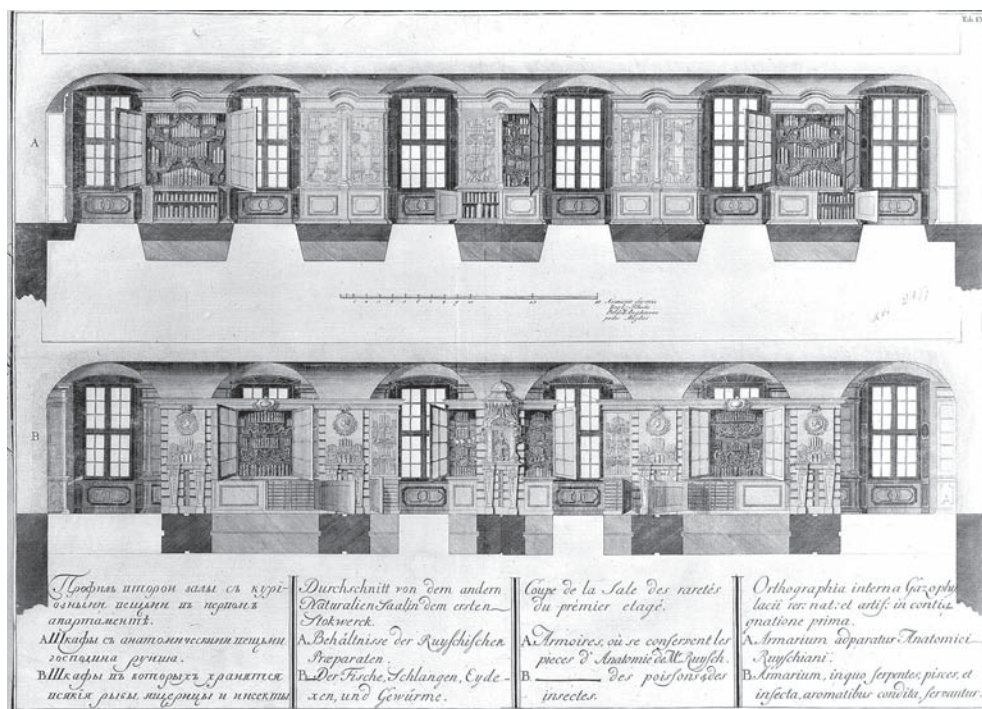 A
B
Профиль второи залы съ кури-
озными вещми въ первомъ
апартаментѣ.
А Шкафы съ анатомическими вещьми
господина руиша.
В Шкафы въ которыхъ хранятся
всякія рыбы, ящерицы и инсекты
Durchschnitt von dem andern
Naturalien-Saal in dem ersten
Stokwerck.
A. Behältnisse der Ruyschischen
Præparaten.
B. Der Fische, Schlangen, Eyde-
xen, und Gewürme.
Coupe de la Sale des raretés
du prémier etagé.
A. Armoires, où se conservent les
pieces d'Anatomie de Mr. Ruysch.
B. des poissons & des
insectes.
Orthographia interna Gazophy
lacii rer: nat: et artif: in contig
natione prima.
A. Armarium adparatus Anatomici
Ruyschiani.
B. Armarium, in quo serpentes, pisces, et
insecta, aromatibus condita, servantur.